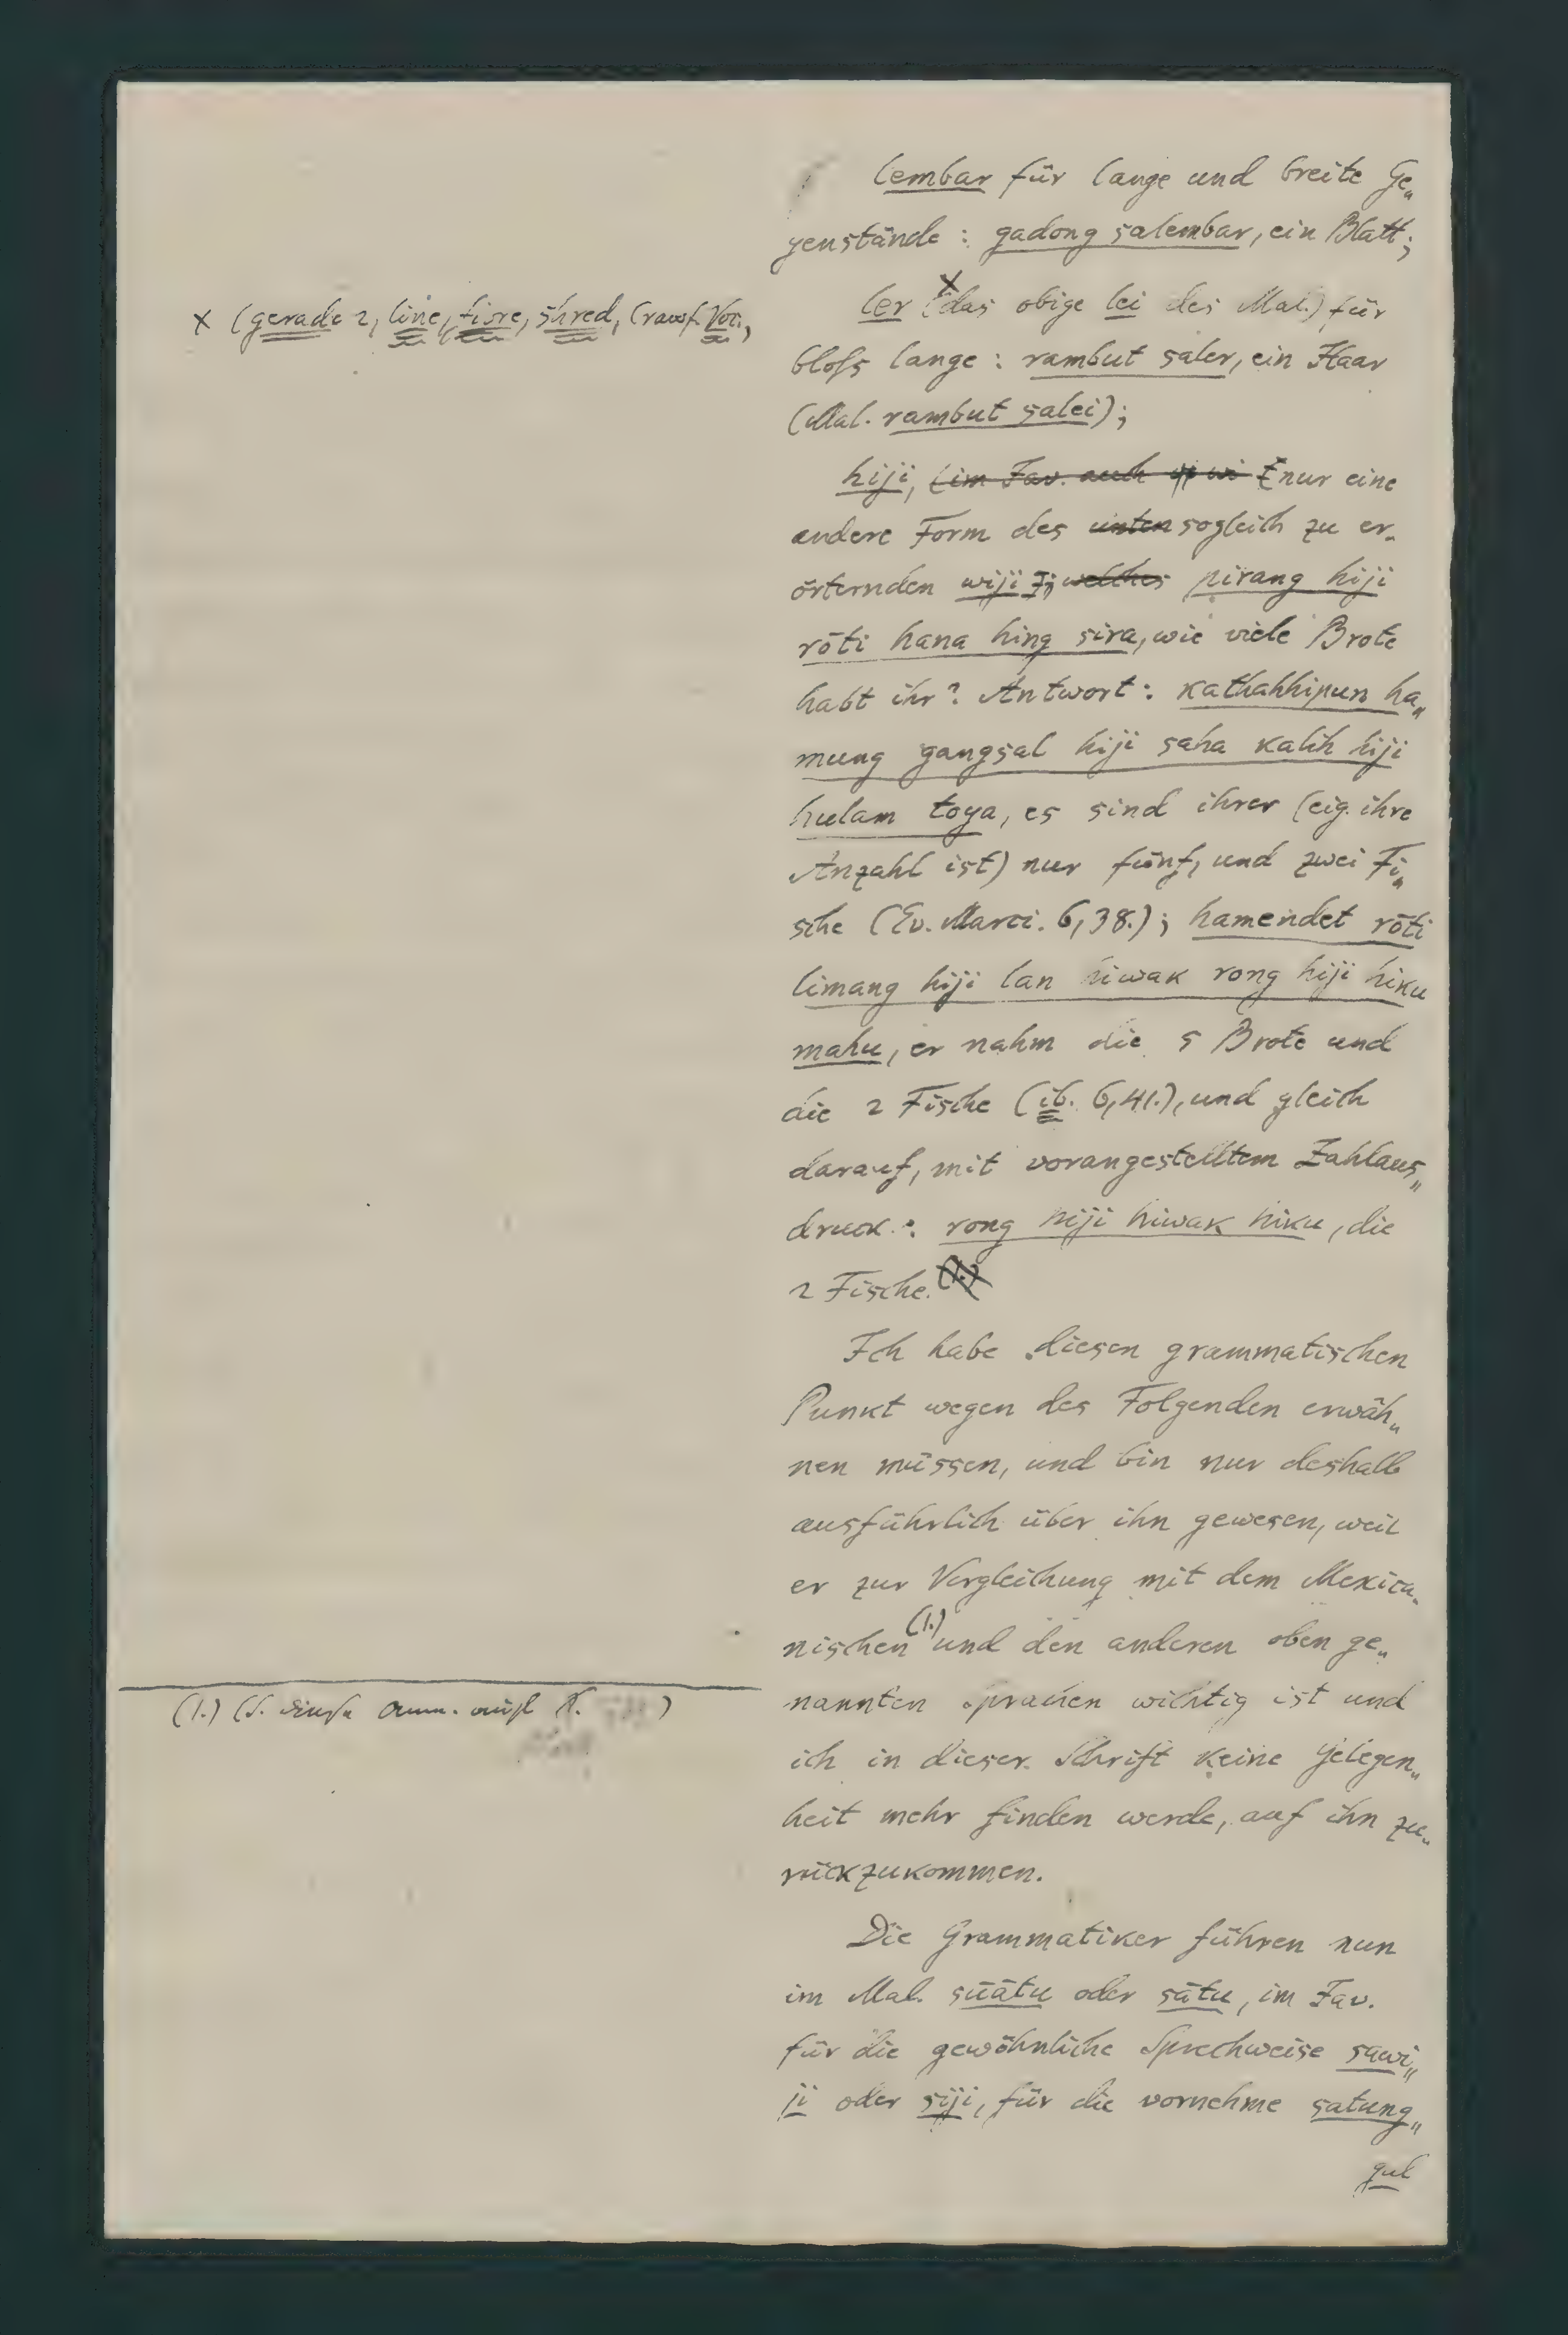 lembar für lange und breite Ge„
genstände: gadong salembar, ein Blatt;
ler (das obige lei des Mal.) für
× (gerade 2, line, fibre, shred, Crawf. Voc.,
bloſs lange: rambut saler, ein Haar
(Mal. rambut salei);
hiji, (im Jav. auch wi (nur eine
andere Form des unten sogleich zu er„
örternden wiji); welches pirang hiji
rōti hana hing sira, wie viele Brote
habt ihr? Antwort: kathahhipun ha„
mung gangsal hiji saha kalih hiji
hulam toya, es sind ihrer (eig. ihre
Anzahl ist) nur fünf, und zwei Fi„
sche (Ev. Marci. 6,38.); hamendet rōti
limang hiji lan hiwak rong hiji hiku
mahu, er nahm die 5 Brote und
die 2 Fische (ib. 6,41.), und gleich
darauf, mit vorangestelltem Zahlaus„
druck: rong hiji hiwak hiku, die
2 Fische. (1.)
Ich habe diesen grammatischen
Punkt wegen des Folgenden erwäh„
nen müssen, und bin nur deshalb
ausführlich über ihn gewesen, weil
er zur Vergleichung mit dem Mexica„
nischen (1.) und den anderen oben ge„
nannten Sprachen wichtig ist und
(1.) (S. diese Anm. auf S. )
ich in dieser Schrift keine Gelegen„
heit mehr finden werde, auf ihn zu„
rückzukommen.
Die Grammatiker führen nun
im Mal. sūātu oder sātu, im Jav.
für die gewöhnliche Sprechweise sawi„
ji oder siji, für die vornehme satung„
gul